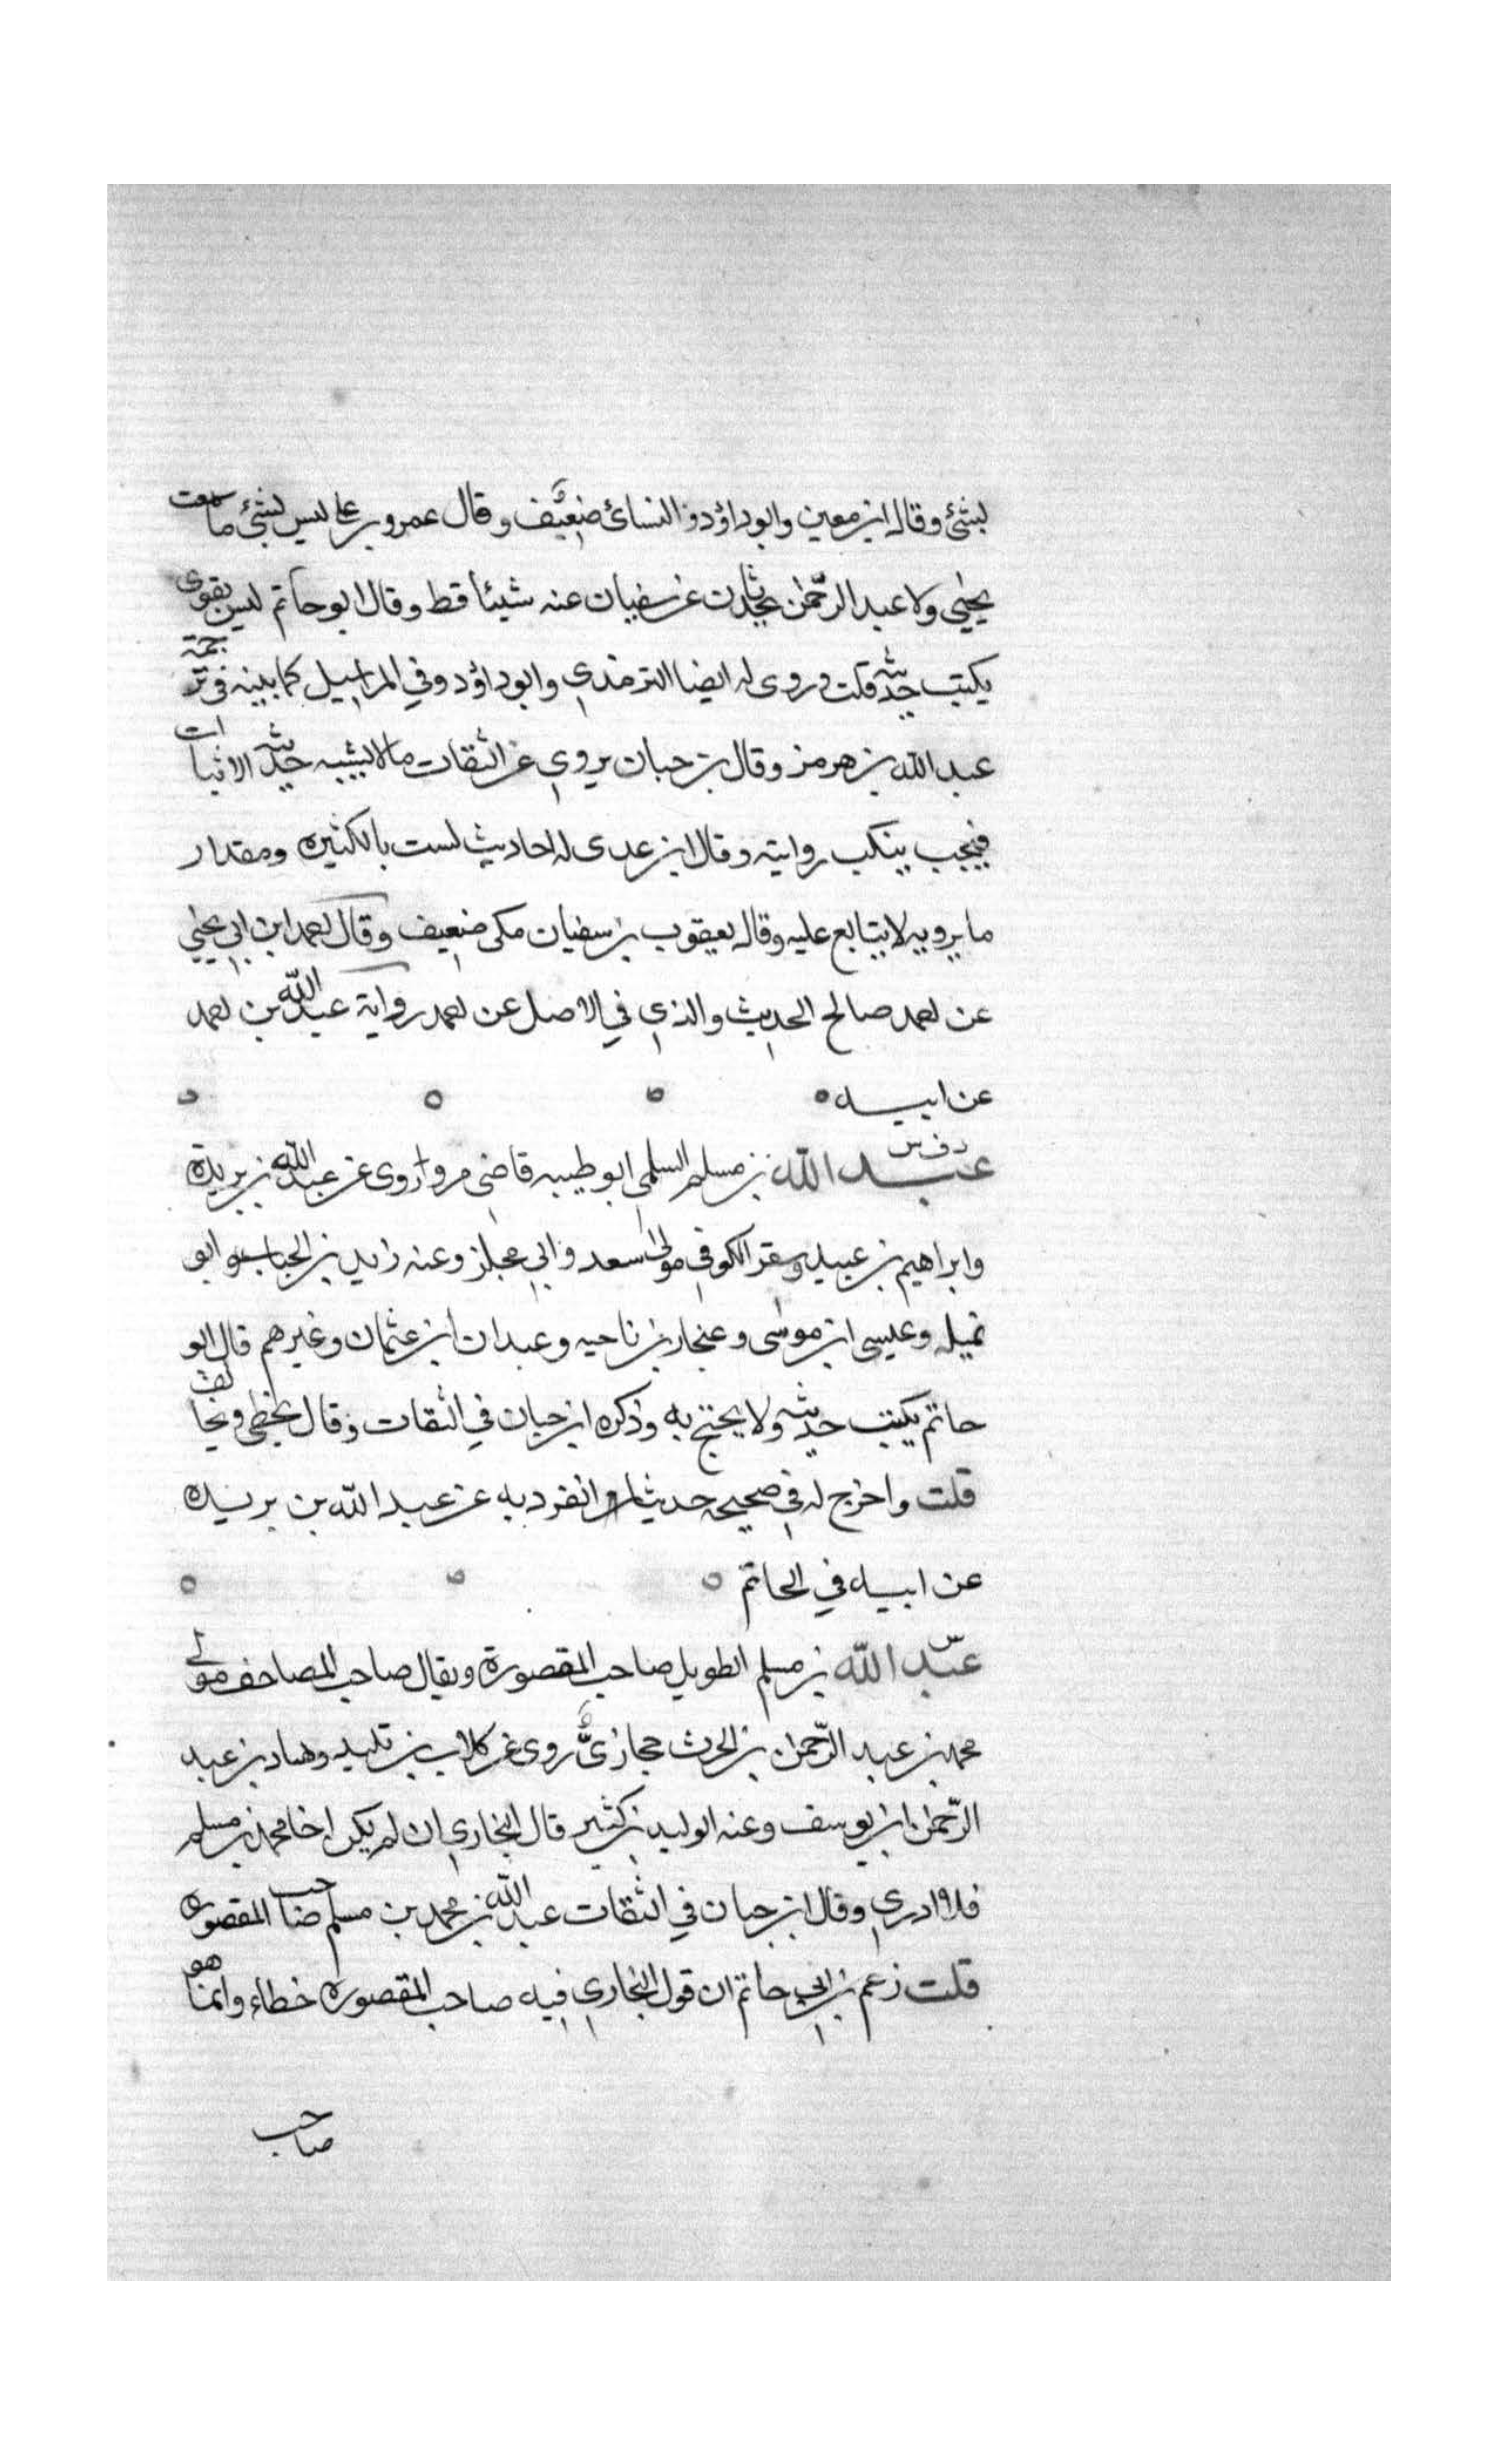 بشئ وقال ابن معين وابوداؤد والنسائ ضعيف وقال عمرو بن على ليس بشئ ما سمعت
يحيى ولا عبد الرحمن يحدثان عن سفيان عنه شيئا قط وقال ابو حاتم ليس بقوى
يكتب حديثه قلت وروى له ايضا الترمذي وابوداؤد وفي المراسيل كما بينه في ترجمة
عبد الله بن هرمز وقال بن حبان يروي عن الثقات مالا يشبه حديث الاثبات
فيجب ينكب روايته وقال ابن عدى له احاديث لست بالكثيره ومقدار
ما يرويه لا يتابع عليه وقال يعقوب بن سفيان مكى ضعيف وقال احمد ابن ابي يحيى
عن احمد صالح الحديث والذي في الاصل عن احمد رواية عبد الله بن احمد
عن ابيه
د ت س
عبد الله بن مسلم السلمي ابو طيبه قاضي مرو روى عن عبد الله بن بريدة
وابراهيم بن عبيد وسقر الكوفي مولى سعد وابي مجلز وعنه زيد بن الحباب وابو
تميله وعيسى ابن موسى وعنجار بن ناحيه وعبدان ابن عثمان وغيرهم قال ابو
حاتم يكتب حديثه ولا يحتج به وذكره ابن حبان في الثقات وقال يخطي ويخالف
قلت واخرج له في صحيحه حديثا انفرد به عن عبد الله بن بريده
عن ابيه في الخاتم
س
عبد الله بن مسلم الطويل صاحب المقصورة ويقال صاحب المصاحف مولى
محمد بن عبد الرحمن بن الحرث حجازى روى عن كلاب بن تليد وهاد بن عبد
الرحمن ابن يوسف وعنه الوليد بن كثير قال البخاري ان لم يكن اخا محمد بن مسلم
فلا ادري وقال ابن حبان في الثقات عبد الله بن محمد بن مسلم صاحب المقصوره
قلت زعم بن ابي حاتم ان قول البخاري فيه صاحب المقصوره خطاء وانما هو
صاحب